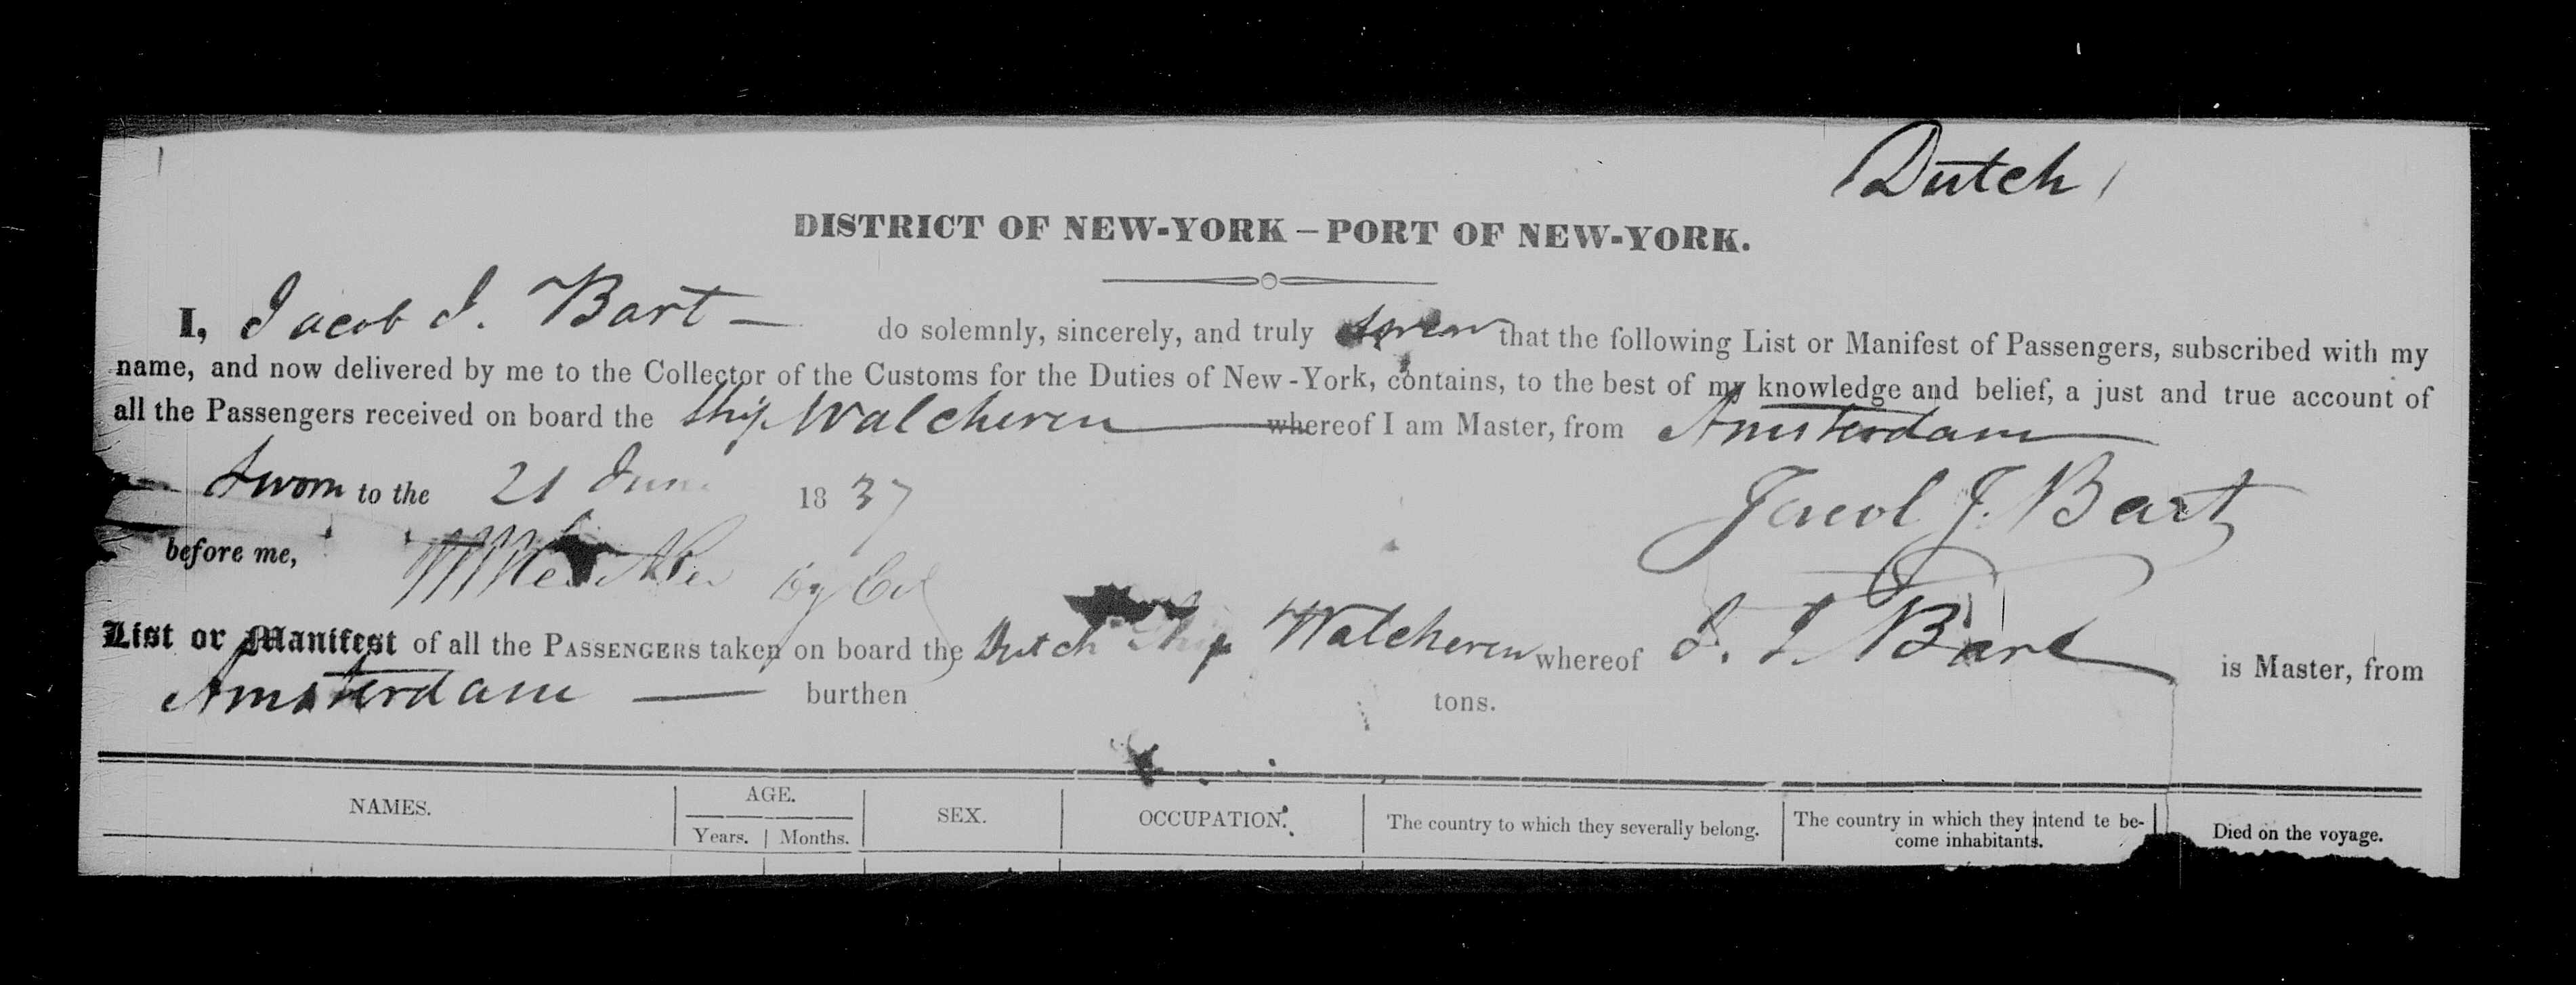 Dutch
DISTRICT OF NEW-YORK – PORT OF NEW-YORK.
I, Jacob J. Bart — do solemnly, sincerely, and truly that the following List or Manifest of Passengers, subscribed with my
name, and now delivered by me to the Collector of the Customs for the Duties of New-York, contains, to the best of my knowledge and belief, a just and true account of
all the Passengers received on board the Ship Walcheren whereof I am Master, from Amsterdam
Sworn to the 21 June 1837
Jacob J. Bart
before me,
List or Manifest of all the PASSENGERS taken on board the Dutch Ship Walcheren whereof J. J. Bart is Master, from
Amsterdam — burthen tons.
NAMES. AGE. SEX. OCCUPATION. The country to which they severally belong. The country in which they intend te be- Died on the voyage.
Years. Months. come inhabitants.